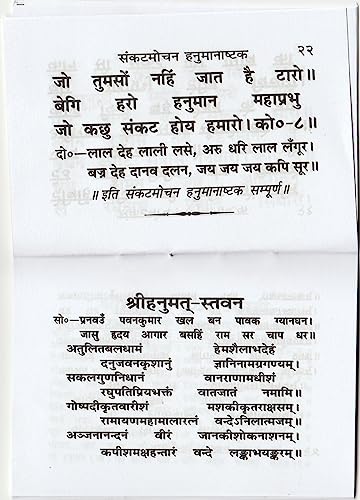 संकटमोचन हनुमानाष्टक २२
जो तुमसों नहिं जात है टारो॥
बेगि हरो हनुमान महाप्रभु
जो कछु संकट होय हमारो। को०-८॥
दो०–लाल देह लाली लसे, अरु धरि लाल लँगूर।
बज्र देह दानव दलन, जय जय जय कपि सूर॥
॥ इति संकटमोचन हनुमानाष्टक सम्पूर्ण॥
श्रीहनुमत्-स्तवन
सो०–प्रनवउँ पवनकुमार खल बन पावक ग्यानघन।
जासु हृदय आगार बसहिं राम सर चाप धर॥
अतुलितबलधामं हेमशैलाभदेहं
दनुजवनकृशानुं ज्ञानिनामग्रगण्यम्।
सकलगुणनिधानं वानराणामधीशं
रघुपतिप्रियभक्तं वातजातं नमामि॥
गोष्पदीकृतवारीशं मशकीकृतराक्षसम्।
रामायणमहामालारत्नं वन्देऽनिलात्मजम्॥
अञ्जनानन्दनं वीरं जानकीशोकनाशनम्।
कपीशमक्षहन्तारं वन्दे लङ्काभयङ्करम्॥